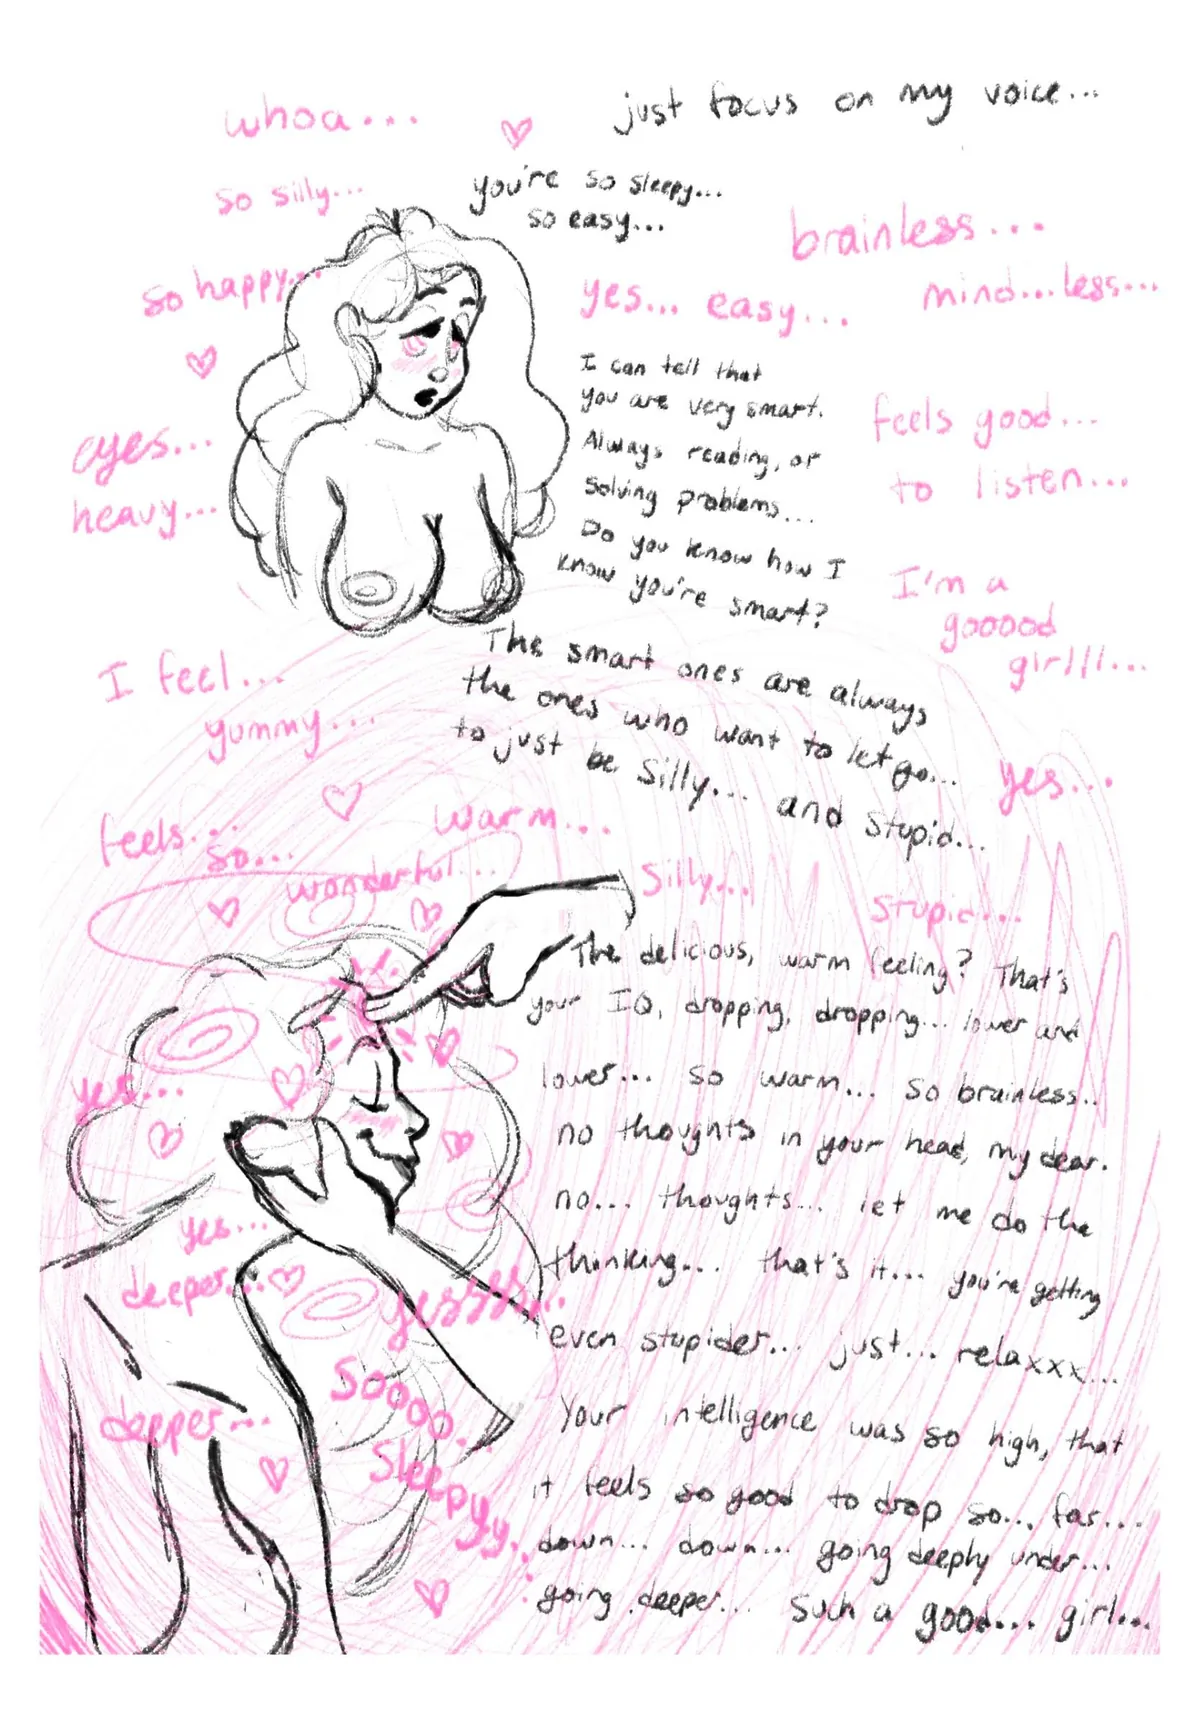 whoa...
just focus on my voice...
so silly...
you're so sleepy...
so easy...
brainless...
so happy...
yes... easy...
mind...less...
I can tell that
you are very smart.
Always reading, or
solving problems...
Do you know how I
know you're smart?
feels good...
to listen...
eyes...
heavy...
I'm a
gooood
girlll...
The smart ones are always
the ones who want to let go...
to just be silly... and stupid...
I feel...
yummy...
yes...
feels...
so...
wonderful...
warm...
silly...
stupid...
The delicious, warm feeling? That's
your IQ, dropping, dropping... lower and
lower... so warm... so brainless..
no thoughts in your head, my dear.
no... thoughts... let me do the
thinking... that's it... you're getting
even stupider... just... relaxxx...
yes...
yes...
deeper...
yessss...
Soooo...
sleepyy...
deeper...
Your intelligence was so high, that
it feels so good to drop so... far...
down... down... going deeply under...
going deeper... such a good... girl...